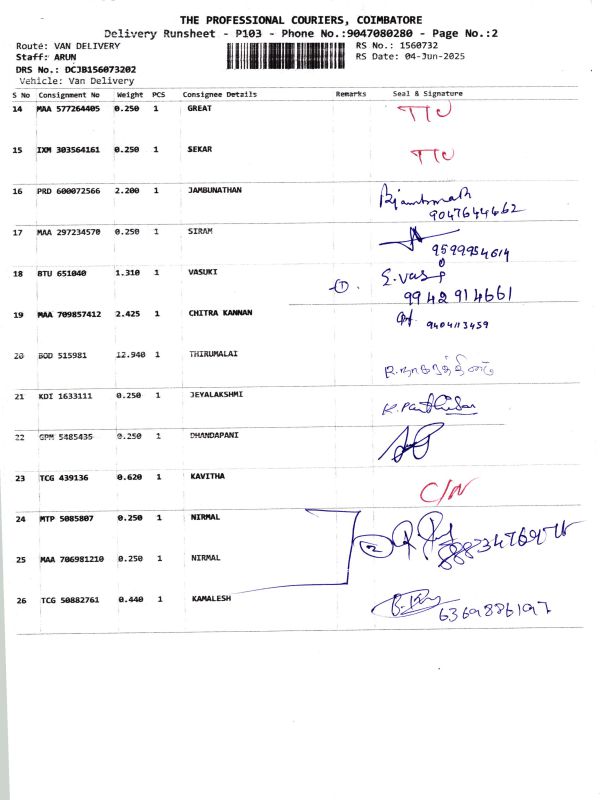 THE PROFESSIONAL COURIERS, COIMBATORE
Delivery Runsheet - P103 - Phone No.:9047080280 - Page No.:2
Route: VAN DELIVERY RS No.: 1560732
Staff: ARUN RS Date: 04-Jun-2025
DRS No.: DCJB156073202
Vehicle: Van Delivery
S No Consignment No Weight PCS Consignee Details Remarks Seal & Signature
14 MAA 577264405 0.250 1 GREAT
15 IXM 303564161 0.250 1 SEKAR
16 PRD 600072566 2.200 1 JAMBUNATHAN
9047644662
17 MAA 297234570 0.250 1 SIRAM
9599954614
18 BTU 651040 1.310 1 VASUKI ① S.Vas
9942914661
19 MAA 709857412 2.425 1 CHITRA KANNAN
9404113459
20 BOD 515981 12.940 1 THIRUMALAI
21 KDI 1633111 0.250 1 JEYALAKSHMI
22 GPM 5485435 0.250 1 DHANDAPANI
23 TCG 439136 0.620 1 KAVITHA C/N
24 MTP 5085807 0.250 1 NIRMAL ②
25 MAA 706981210 0.250 1 NIRMAL
26 TCG 50882761 0.440 1 KAMALESH
6369886197